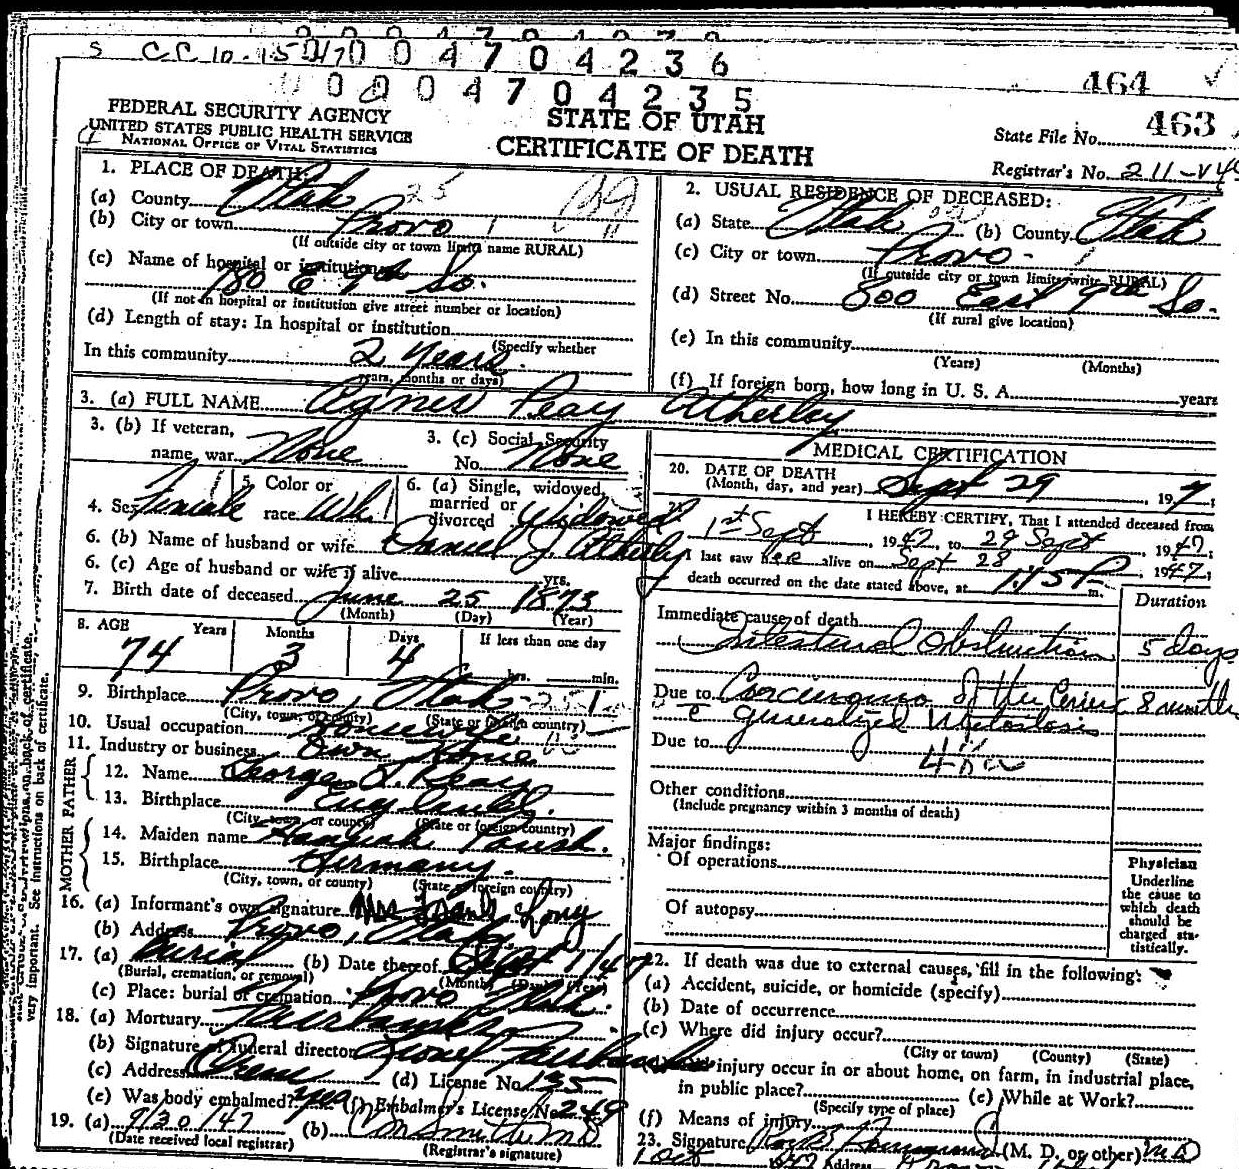 S C.C. 10-15-47
0004704236
464
0004704235
FEDERAL SECURITY AGENCY
UNITED STATES PUBLIC HEALTH SERVICE
NATIONAL OFFICE OF VITAL STATISTICS
STATE OF UTAH
CERTIFICATE OF DEATH
State File No. 463
Registrar's No. 211-
1. PLACE OF DEATH:
(a) County Utah 25
(b) City or town Provo 1
(If outside city or town limits name RURAL)
(c) Name of hospital or institution
E 9th So.
(If not in hospital or institution give street number or location)
(d) Length of stay: In hospital or institution
(Specify whether
In this community 2 Years
years, months or days)
2. USUAL RESIDENCE OF DECEASED:
(a) State Utah (b) County Utah
(c) City or town Provo -
(If outside city or town limits write RURAL)
(d) Street No. 800 East 9th So.
(If rural give location)
(e) In this community
(Years) (Months)
(f) If foreign born, how long in U. S. A. years
3. (a) FULL NAME Agnes Peay Atherley
3. (b) If veteran,
name war None
3. (c) Social Security
No. None
4. Sex Female
5. Color or
race Wh.
6. (a) Single, widowed,
married or
divorced Widowed
6. (b) Name of husband or wife Daniel J. Atherley
6. (c) Age of husband or wife if alive yrs.
7. Birth date of deceased June 25 1873
(Month) (Day) (Year)
8. AGE Years Months Days If less than one day
74 3 4 hrs. min.
9. Birthplace Provo, Utah
(City, town, or county) (State or foreign country)
10. Usual occupation Housewife
11. Industry or business Own Home
FATHER
12. Name George Peay
13. Birthplace England.
(City, town, or county) (State or foreign country)
MOTHER
14. Maiden name Parish.
15. Birthplace Germany.
(City, town, or county) (State or foreign country)
16. (a) Informant's own signature Mrs Long
(b) Address Provo, Utah.
17. (a) Burial (b) Date thereof 1/47
(Burial, cremation, or removal) (Month) (Day) (Year)
(c) Place: burial or cremation Provo Utah.
18. (a) Mortuary
(b) Signature of funeral director
(c) Address Orem (d) License No. 135
(e) Was body embalmed? Yes (f) Embalmer's License No. 249
19. (a) 9/30/47 (b)
(Date received local registrar) (Registrar's signature)
MEDICAL CERTIFICATION
20. DATE OF DEATH
(Month, day, and year) Sept 29, 1947;
21. I HEREBY CERTIFY, That I attended deceased from
1st Sept, 1947, to 29 Sept, 1947;
I last saw her alive on Sept 28, 1947;
death occurred on the date stated above, at 1:15 P m.
Duration
Immediate cause of death
Intestinal Obstruction 5 days
Due to Carcinoma of the Cervix 8 months
c generalized Metastasis
Due to
Other conditions
(Include pregnancy within 3 months of death)
Major findings:
Of operations
Of autopsy
Physician
Underline
the cause to
which death
should be
charged sta-
tistically.
22. If death was due to external causes, fill in the following:
(a) Accident, suicide, or homicide (specify)
(b) Date of occurrence
(c) Where did injury occur?
(City or town) (County) (State)
injury occur in or about home, on farm, in industrial place,
in public place?
(Specify type of place)
(e) While at Work?
(f) Means of injury
23. Signature (M. D. or other) M.D.
1 Oct 1947 Address
very important. See instructions on back of certificate.